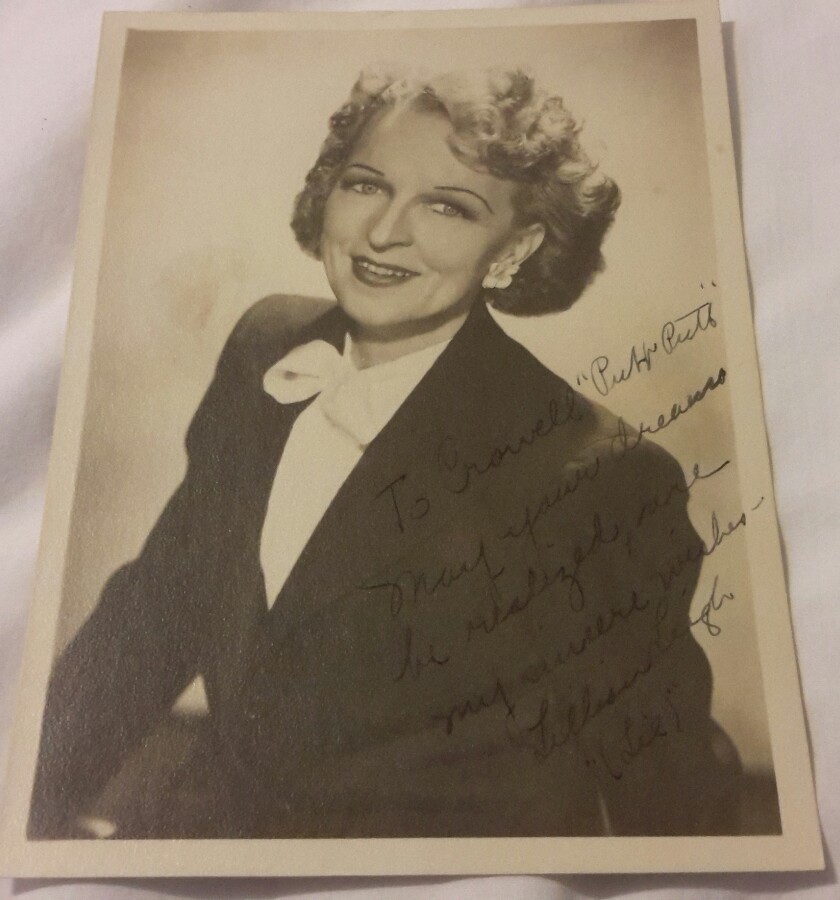 To Crowell "Putt Putt"
May your dreams
be realized, are
my sincere wishes-
Lillian Leigh
"(Lil)"